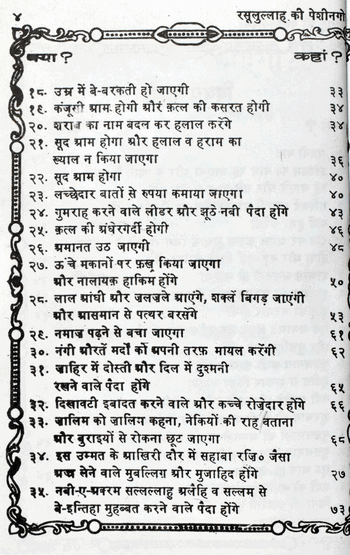 ४ रसूलुल्लाह की पेशीनगो
क्या? कहां?
१८. उम्र में बे-बरकती हो जाएगी ३३
१९. कंजूसी आम होगी और क़त्ल की कसरत होगी ३४
२०. शराब का नाम बदल कर हलाल करेंगे ३४
२१. सूद आम होगा और हलाल व हराम का
ख्याल न किया जाएगा ३६
२२. सूद आम होगा ४०
२३. लच्छेदार बातों से रुपया कमाया जाएगा ४०
२४. गुमराह करने वाले लीडर और झूठे नबी पैदा होंगे ४३
२५. क़त्ल की अंधेरगर्दी होगी ४६
२६. अमानत उठ जाएगी ४८
२७. ऊंचे मकानों पर फ़ख्र किया जाएगा
और नालायक़ हाकिम होंगे ५०
२८. लाल आंधी और जलजले आएंगे, शक्लें बिगड़ जाएंगी
और आसमान से पत्थर बरसेंगे ५३
२९. नमाज़ पढ़ने से बचा जाएगा ६१
३०. नंगी औरतें मर्दों को अपनी तरफ़ मायल करेंगी ६२
३१. ज़ाहिर में दोस्ती और दिल में दुश्मनी
रखने वाले पैदा होंगे ६५
३२. दिखावटी इबादत करने वाले और कच्चे रोज़ेदार होंगे ६६
३३. ज़ालिम को ज़ालिम कहना, नेकियों की राह बताना
और बुराइयों से रोकना छूट जाएगा ६८
३४. इस उम्मत के आख़िरी दौर में सहाबा रजि० जैसा
अज्र लेने वाले मुबल्लिग़ और मुजाहिद होंगे २७
३५. नबी-ए-अकरम सल्लल्लाहु अलैहि व सल्लम से
बे-इन्तिहा मुहब्बत करने वाले पैदा होंगे ७३